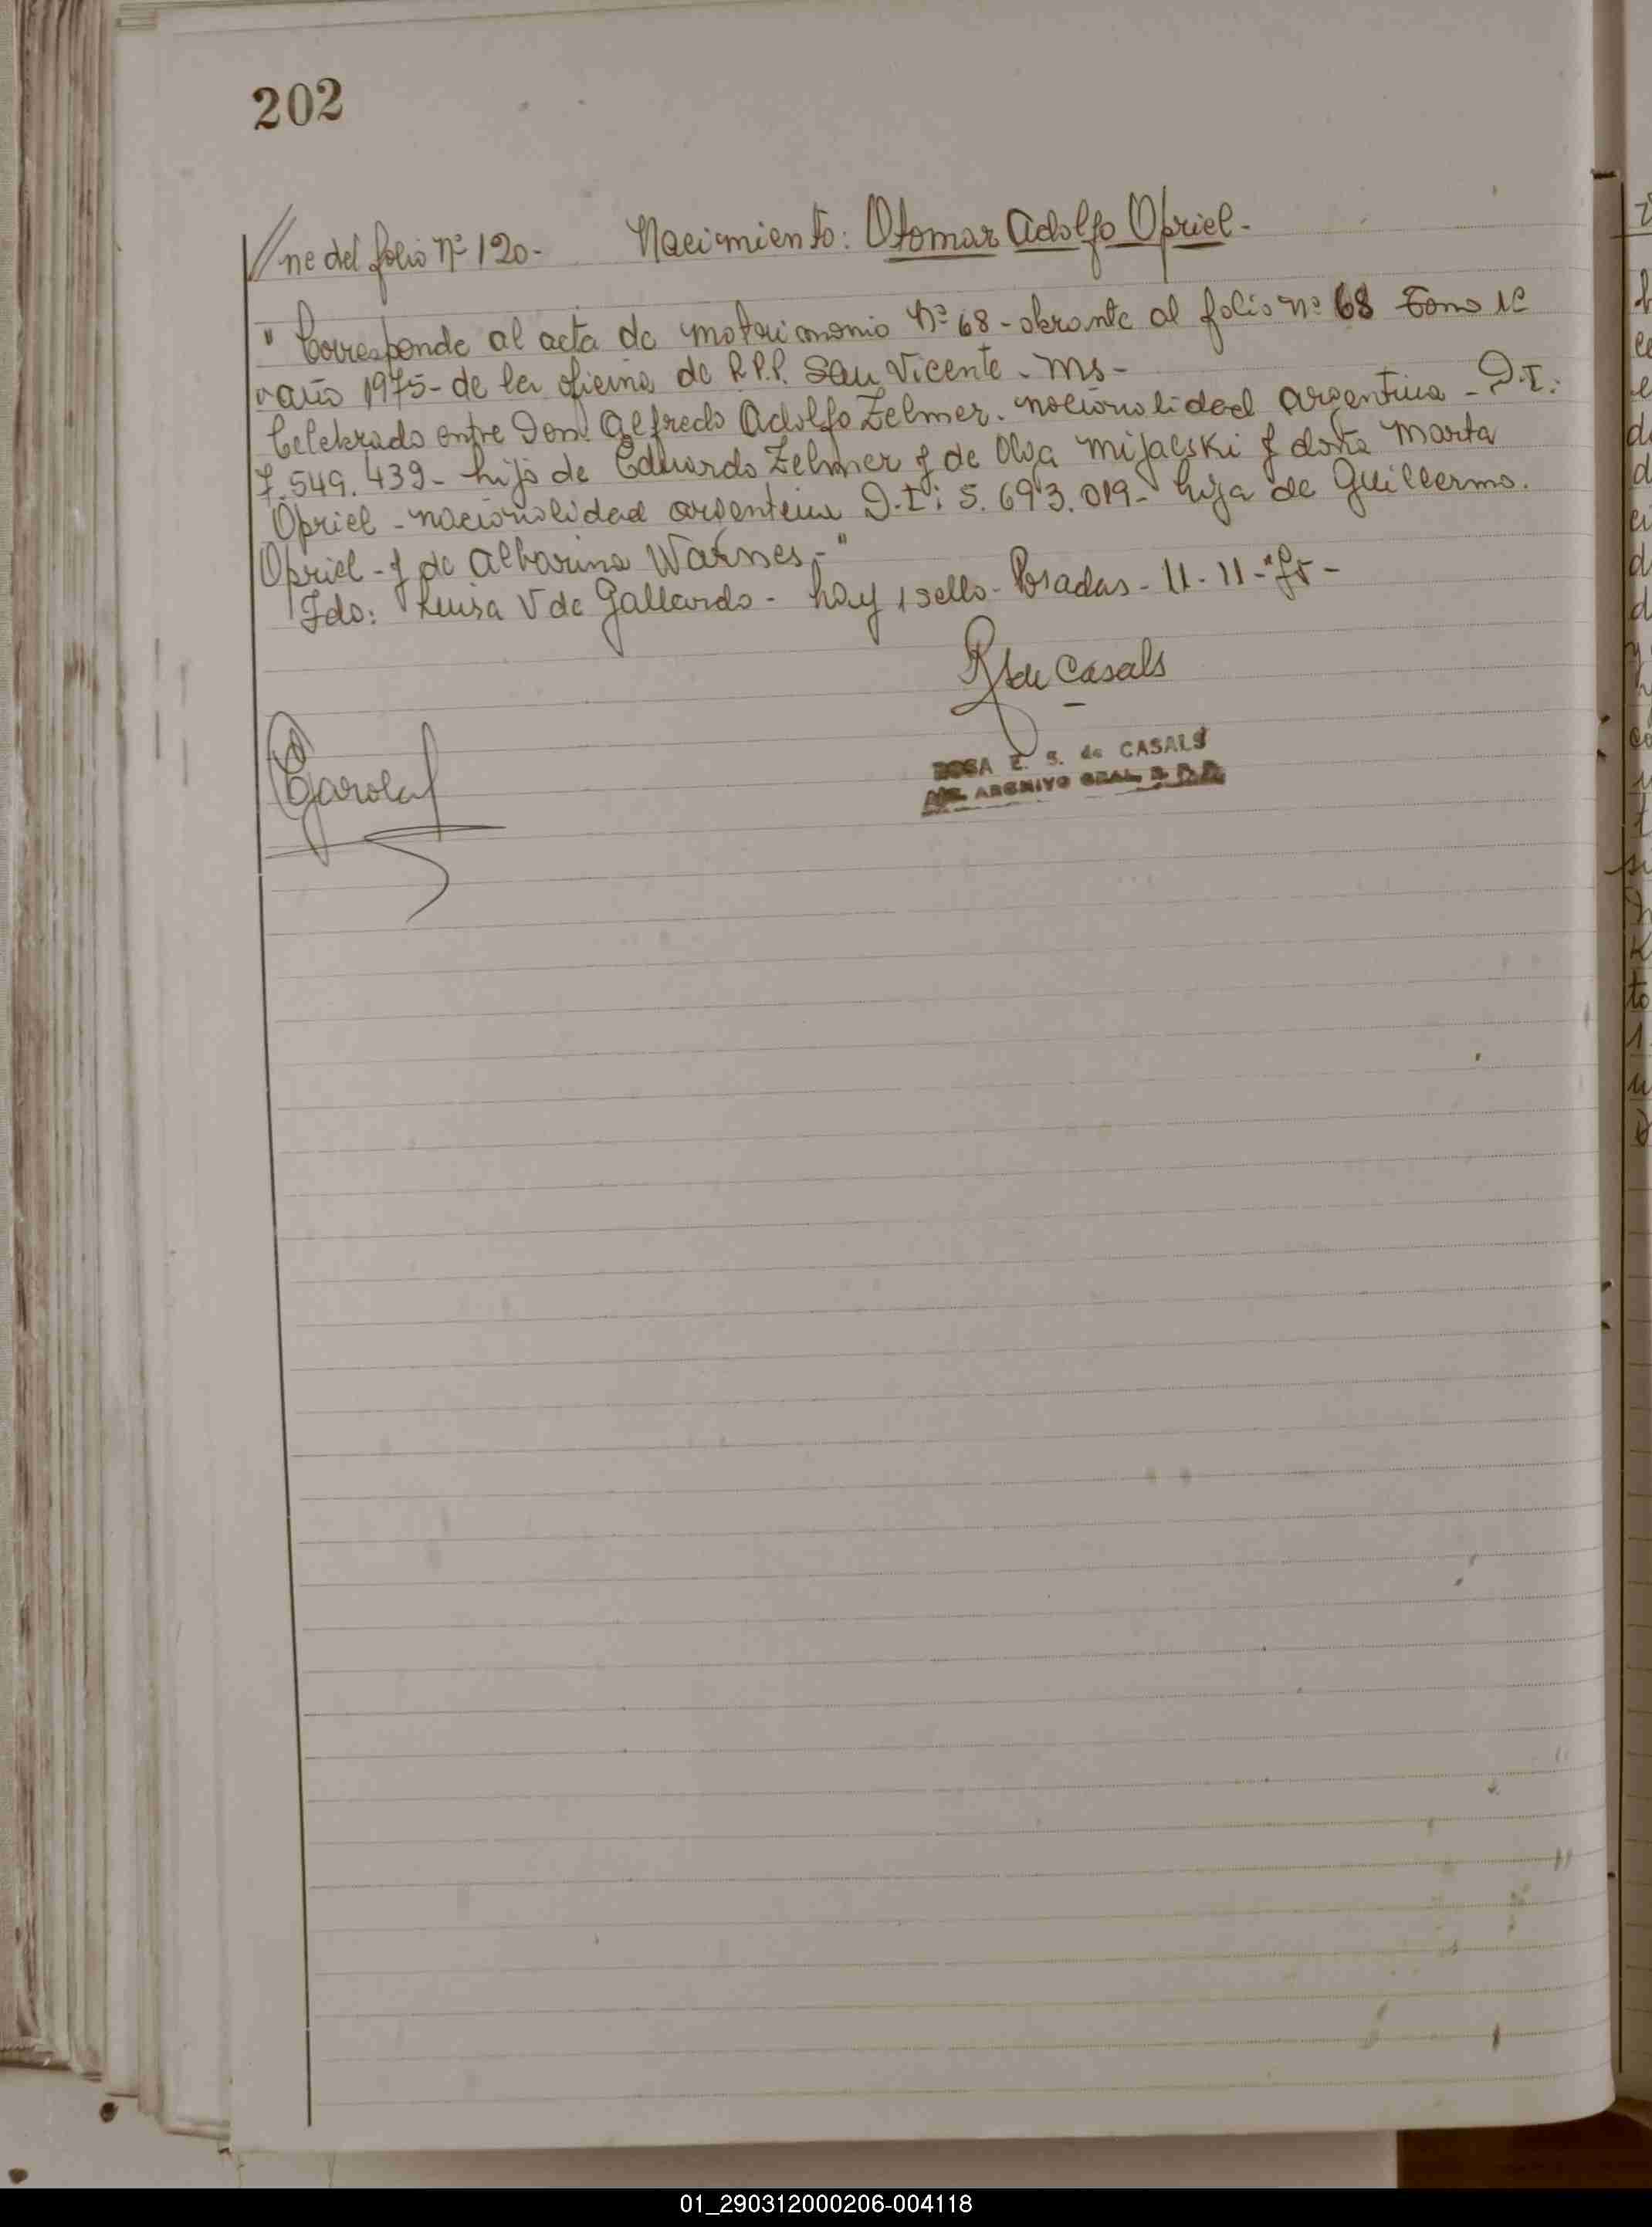 202
//ne del folio Nº 120- Nacimiento: Otomar Adolfo Opriel-
" Corresponde al acta de matrimonio Nº 68- obrante al folio nº 68 Tomo 1º
año 1975- de la oficina de R.P.P. San Vicente - Ms-
Celebrado entre Don Alfredo Adolfo Zelmer- nacionalidad argentina - D.I:
7.549.439- hijo de Eduardo Zelmer y de Olga Mijalski y doña Marta
Opriel - nacionalidad argentina D.I: 5.693.019- hija de Guillermo.
Opriel - y de Albarina Warnes.-"
Fdo: Luisa V de Gallardo - hay 1 sello- Posadas - 11-11-75-
de Casals
ROSA E. S. de CASALS
ARCHIVO GRAL. R.P.P.
01_290312000206-004118